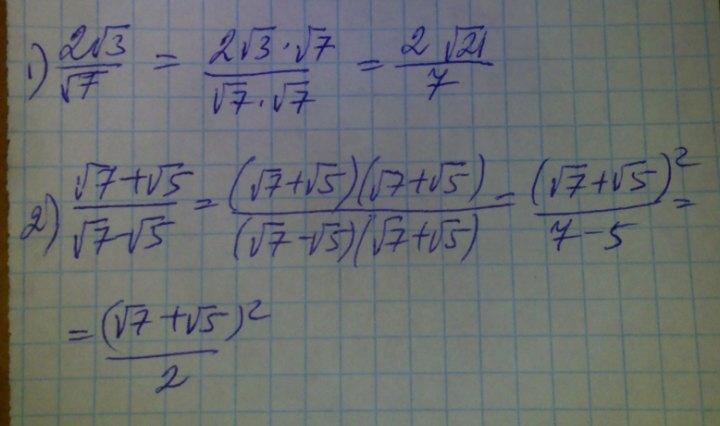 1) 2√3/√7 = 2√3·√7/√7·√7 = 2√21/7
2) √7+√5/√7-√5 = (√7+√5)(√7+√5)/(√7-√5)(√7+√5) = (√7+√5)²/7-5 =
= (√7+√5)²/2